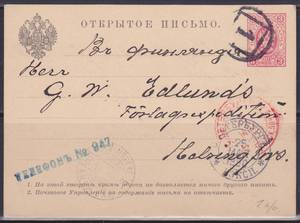 ОТКРЫТОЕ ПИСЬМО.
Въ Финляндію
Herr
G. W. Edlund's
Förlagsexpedition
Helsingfors.
ТЕЛЕФОНЪ № 947.
1. На этой сторонѣ, кромѣ адреса, не дозволяется ничего другого писать.
2. Почтовое Управленіе за содержаніе письма не отвѣчаетъ.